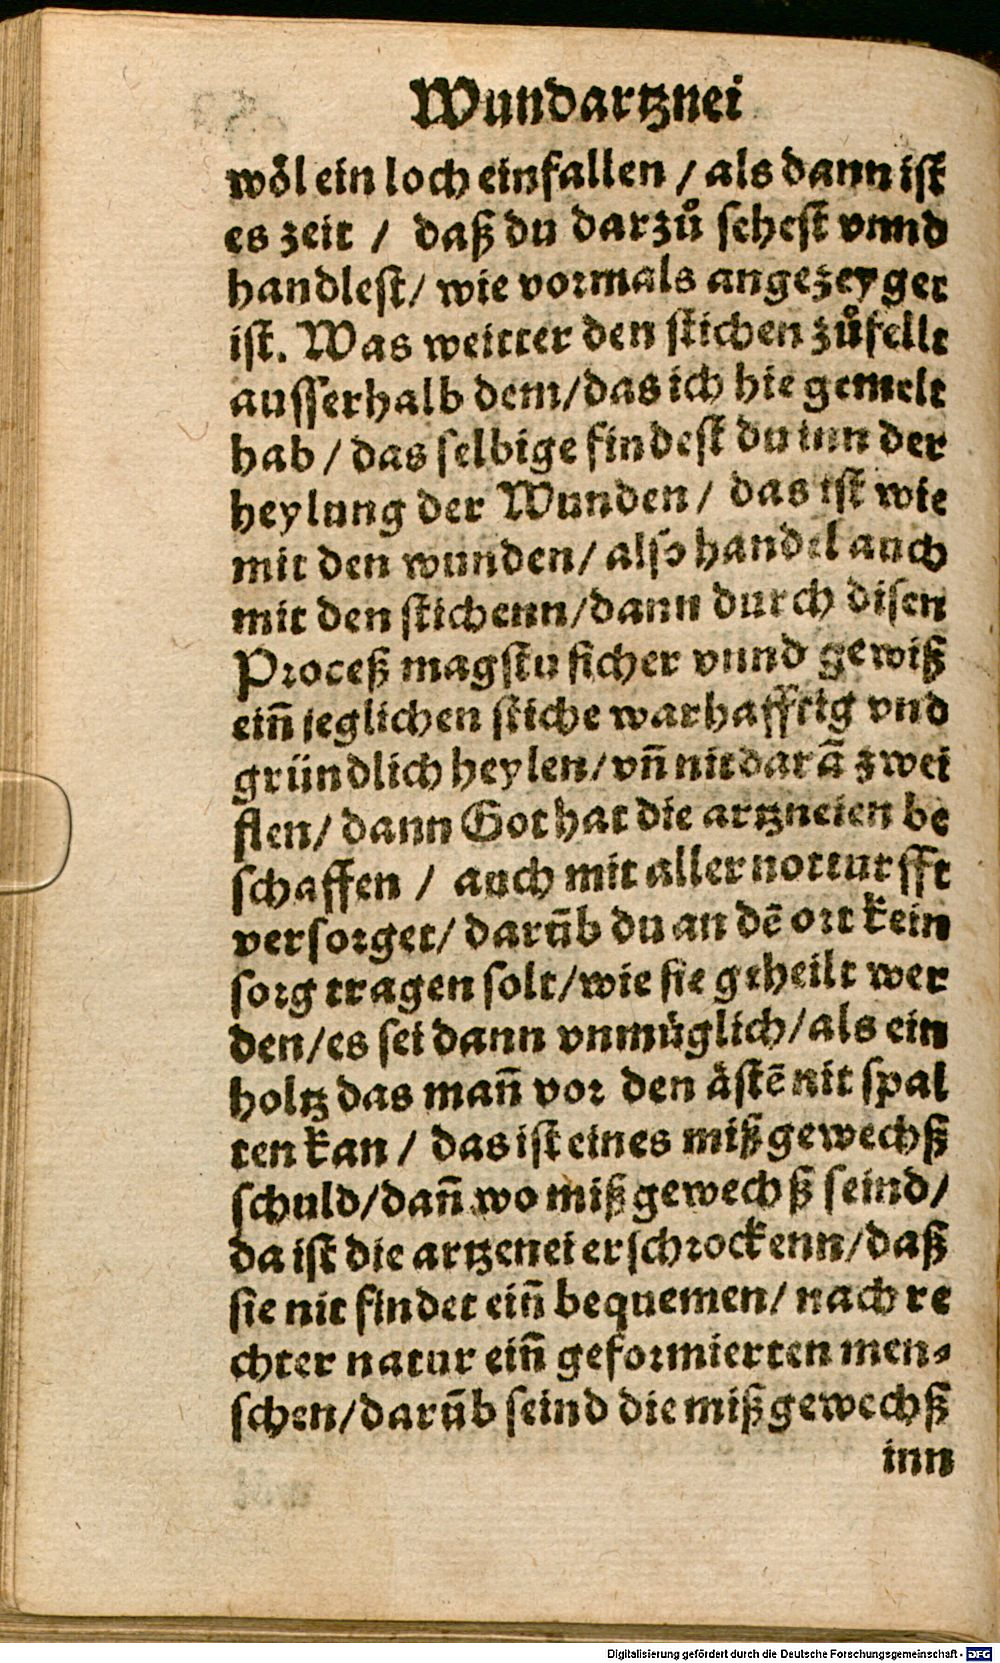 Wundartznei
wöl ein loch einfallen / als dann ist
es zeit / daß du darzů sehest vnnd
handlest/ wie vormals angezeyget
ist. Was weitter den stichen zůfellt
ausserhalb dem/das ich hie gemelt
hab / das selbige findest du inn der
heylung der Wunden/ das ist wie
mit den wunden/ also handel auch
mit den stichenn/dann durch disen
Proceß magstu sicher vnnd gewiß
ein̄ jeglichen stiche warhafftig vnd
gründlich heylen/vn̄ nit darã zwei
flen/ dann Got hat die artzneien be
schaffen / auch mit aller notturfft
versorget/ darũb du an dẽ ort kein
sorg tragen solt/wie sie getheilt wer
den/es sei dann vnmüglich/als ein
holtz das man̄ vor den ästẽ nit spal
ten kan / das ist eines mißgewechß
schuld/dan̄ wo mißgewechß seind/
da ist die artzenei erschrockenn/daß
sie nit findet ein̄ bequemen/ nach re
chter natur ein̄ geformierten men⸗
schen/darũb seind die mißgewechß
inn
Digitalisierung gefördert durch die Deutsche Forschungsgemeinschaft - DFG